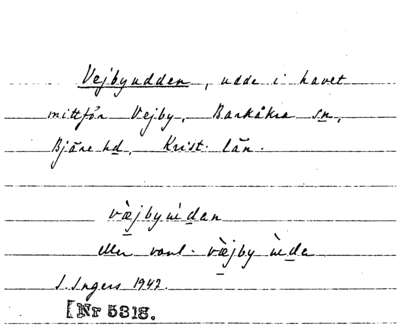 Vejbyudden, udde i havet
mittför Vejby, Barkåkra sn,
Bjäre hd, Krist. län.
væ̀jbyùdan
eller vanl. væ̀jby ùda
I. Ingers 1942.
[Nr 5318.